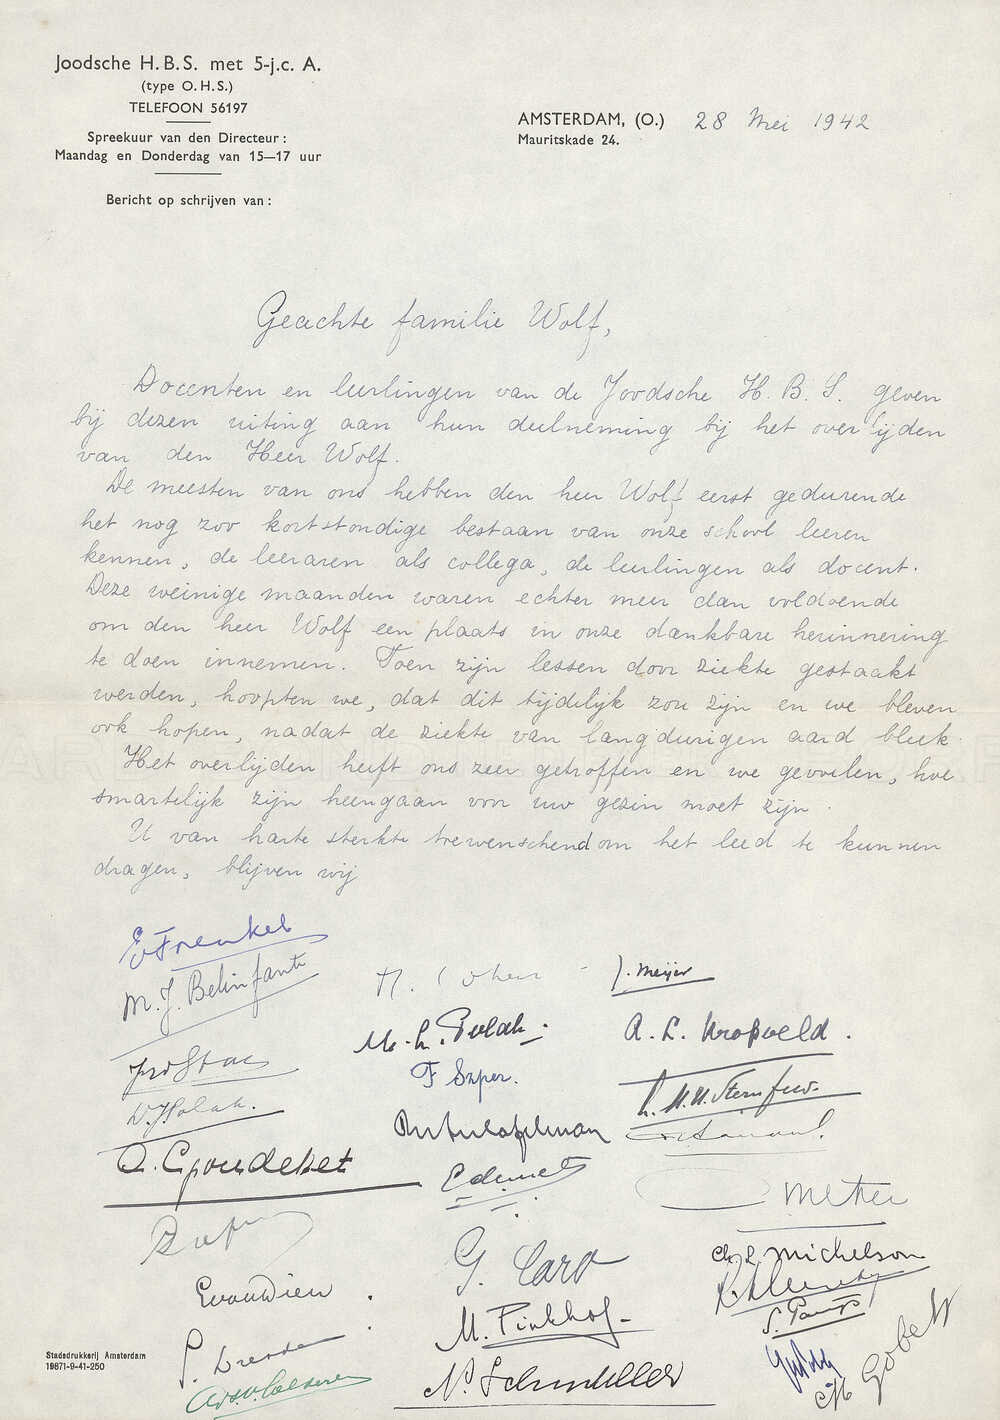 Joodsche H.B.S. met 5-j.c. A.
(type O.H.S.)
TELEFOON 56197
Spreekuur van den Directeur:
Maandag en Donderdag van 15—17 uur
Bericht op schrijven van:
AMSTERDAM, (O.) 28 Mei 1942
Mauritskade 24.
Geachte familie Wolf,
Docenten en leerlingen van de Joodsche H.B.S. geven
bij dezen uiting aan hun deelneming bij het overlijden
van den Heer Wolf.
De meesten van ons hebben den heer Wolf eerst gedurende
het nog zoo kortstondige bestaan van onze school leeren
kennen, de leeraren als collega, de leerlingen als docent.
Deze weinige maanden waren echter meer dan voldoende
om den heer Wolf een plaats in onze dankbare herinnering
te doen innemen. Toen zijn lessen door ziekte gestaakt
werden, hoopten we, dat dit tijdelijk zou zijn en we bleven
ook hopen, nadat de ziekte van langdurigen aard bleek.
Het overlijden heeft ons zeer getroffen en we gevoelen, hoe
smartelijk zijn heengaan voor uw gezin moet zijn.
U van harte sterkte toewenschend om het leed te kunnen
dragen, blijven wij
E Frenkel
M.J. Belinfante
H. Cohen
J. Meijer
M. L. Polak.
A. L. Kropveld.
F Szper.
L. M. H. Sternfeld
A. Goudeket
G. Caro
Ch. L. Michelson
M. Pinkhof
S. Dresden
N. Schmuller
Gobets
Stadsdrukkerij Amsterdam
19871-9-41-250